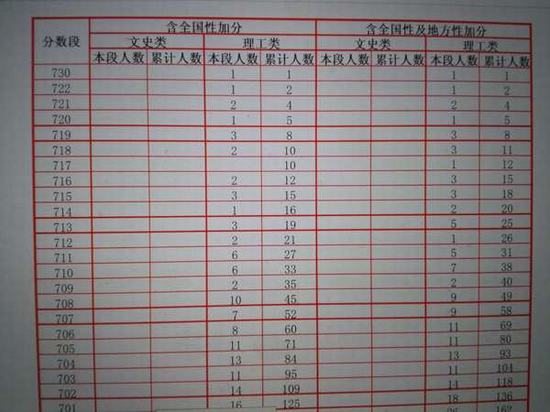 分数段 含全国性加分 含全国性及地方性加分
文史类 理工类 文史类 理工类
本段人数 累计人数 本段人数 累计人数 本段人数 累计人数 本段人数 累计人数
730 1 1 1 1
722 1 2 1 2
721 2 4 2 4
720 1 5 1 5
719 3 8 3 8
718 2 10 3 11
717 10 1 12
716 2 12 3 15
715 3 15 3 18
714 1 16 2 20
713 3 19 5 25
712 2 21 1 26
711 6 27 5 31
710 6 33 7 38
709 2 35 2 40
708 10 45 9 49
707 7 52 9 58
706 8 60 11 69
705 11 71 11 80
704 13 84 13 93
703 11 95 11 104
702 14 109 14 118
701 16 125 18 136
26 162